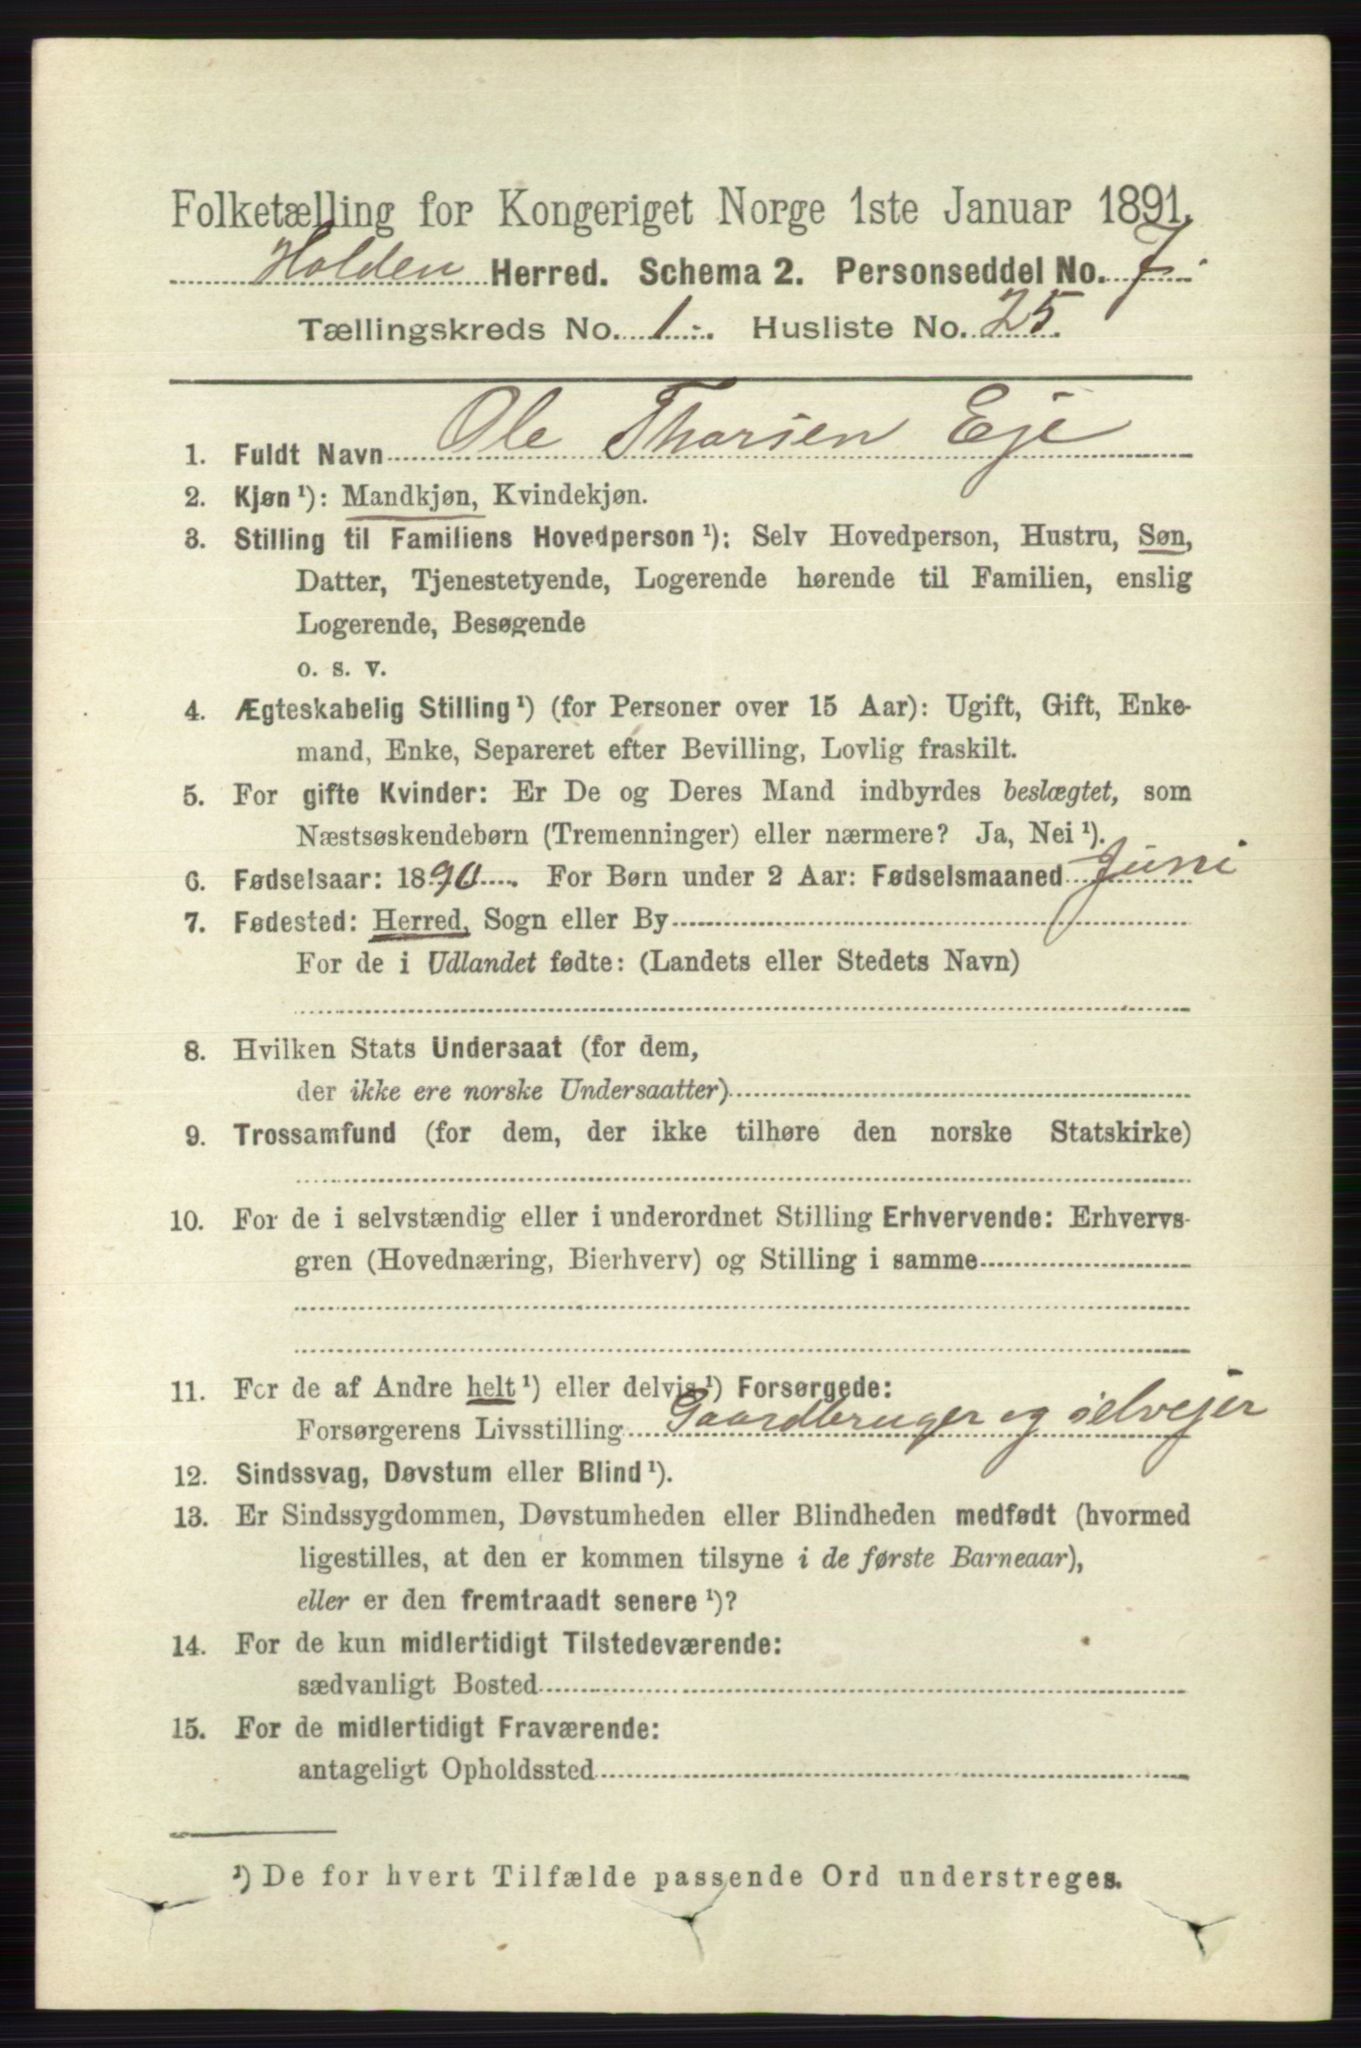 Folketælling for Kongeriget Norge 1ste Januar 1891.
Holden Herred. Schema 2. Personseddel No. 7.
Tællingskreds No. 1. Husliste No. 25
1. Fuldt Navn Ole Thorsen Eje
2. Kjøn¹): Mandkjøn, Kvindekjøn.
3. Stilling til Familiens Hovedperson¹): Selv Hovedperson, Hustru, Søn,
Datter, Tjenestetyende, Logerende hørende til Familien, enslig
Logerende, Besøgende
o. s. v.
4. Ægteskabelig Stilling¹) (for Personer over 15 Aar): Ugift, Gift, Enke-
mand, Enke, Separeret efter Bevilling, Lovlig fraskilt.
5. For gifte Kvinder: Er De og Deres Mand indbyrdes beslægtet, som
Næstsøskendebørn (Tremenninger) eller nærmere? Ja, Nei¹).
6. Fødselsaar: 1890. For Børn under 2 Aar: Fødselsmaaned Juni
7. Fødested: Herred, Sogn eller By
For de i Udlandet fødte: (Landets eller Stedets Navn)
8. Hvilken Stats Undersaat (for dem,
der ikke ere norske Undersaatter)
9. Trossamfund (for dem, der ikke tilhøre den norske Statskirke)
10. For de i selvstændig eller i underordnet Stilling Erhvervende: Erhvervs-
gren (Hovednæring, Bierhverv) og Stilling i samme
11. For de af Andre helt¹) eller delvis¹) Forsørgede:
Forsørgerens Livsstilling Gaardbruger og selvejer
12. Sindssvag, Døvstum eller Blind¹).
13. Er Sindssygdommen, Døvstumheden eller Blindheden medfødt (hvormed
ligestilles, at den er kommen tilsyne i de første Barneaar),
eller er den fremtraadt senere¹)?
14. For de kun midlertidigt Tilstedeværende:
sædvanligt Bosted
15. For de midlertidigt Fraværende:
antageligt Opholdssted
¹) De for hvert Tilfælde passende Ord understreges.